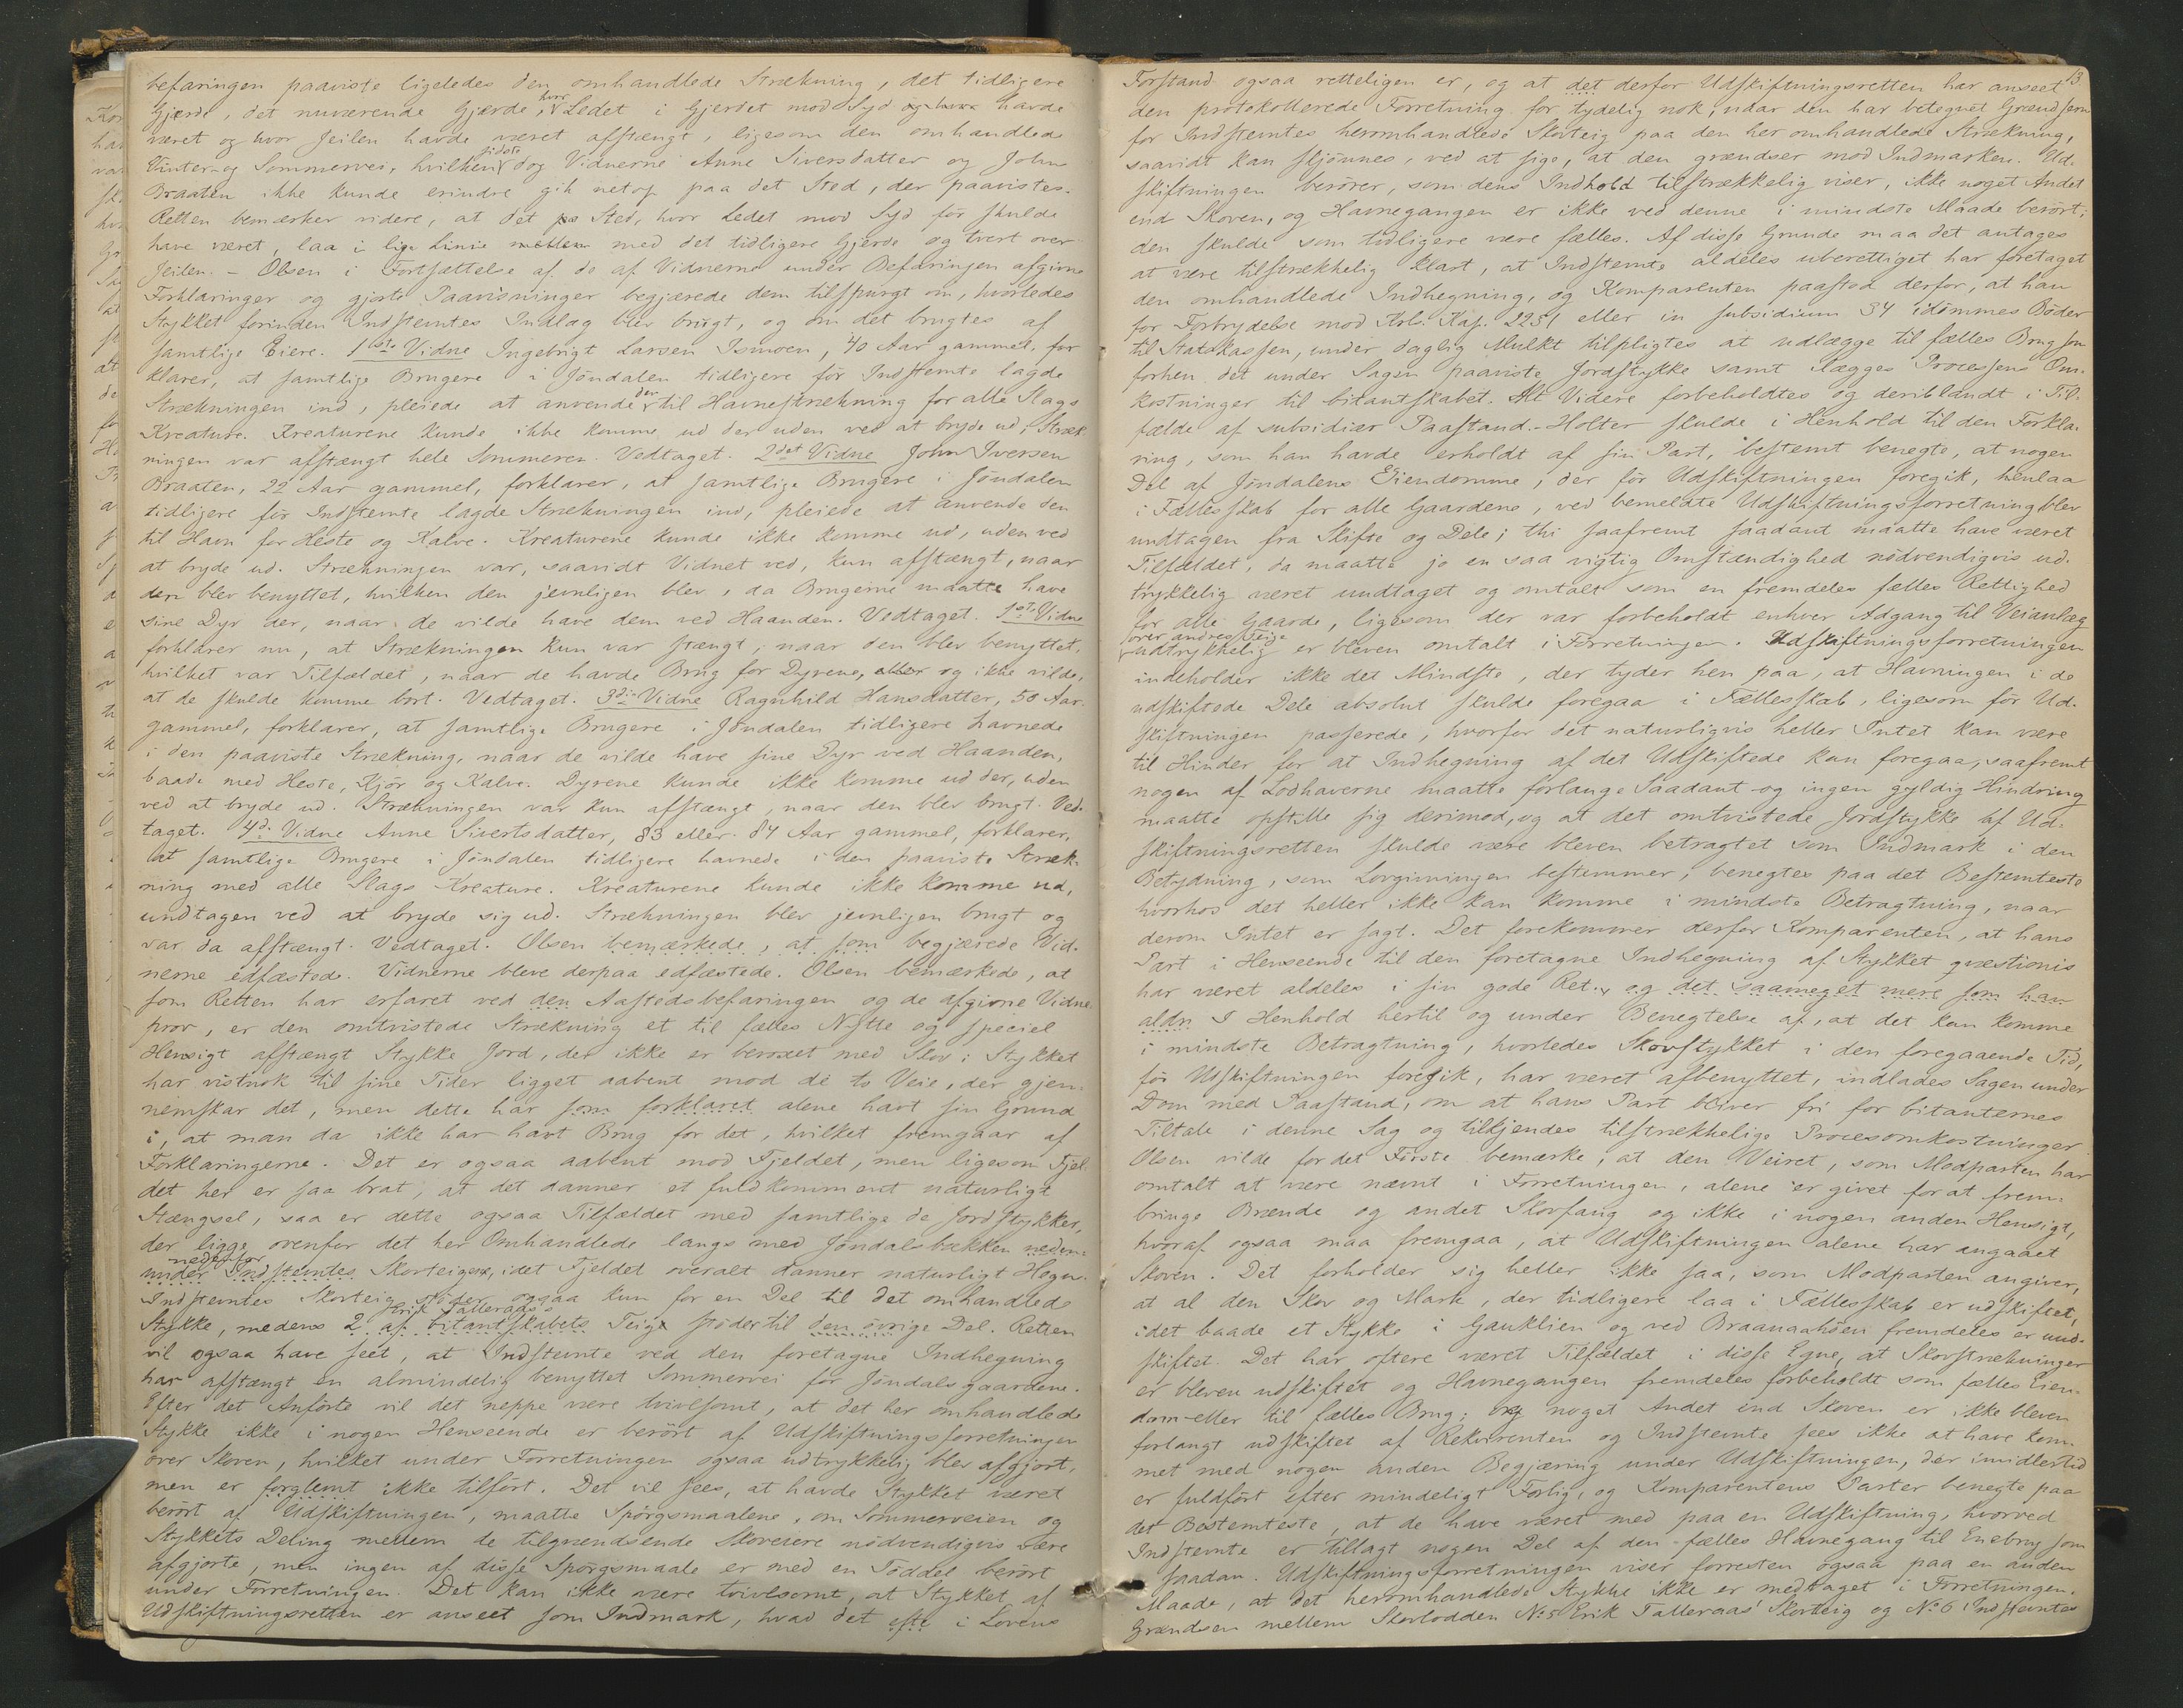 befaringen paaviste ligeledes den omhandlede Strækning, det tidligere
Gjærde, det nuværende Gjærde, hvor Ledet i Gjerdet mod Syd og hvor havde
været og hvor Jeilen havde været afstængt, ligesom den omhandlede
Vinter- og Sommervei, hvilken sidste dog Vidnerne Anne Siversdatter og John
Braaten ikke kunde erindre gik netop paa det Sted, der paavistes.
Retten bemærker videre, at det pa Sted, hvor Ledet mod Syd før skulde
have været, laa i lige Linie mellem med det tidligere Gjerde og tvert over
Jeilen. – Olsen i Fortsættelse af de af Vidnerne under Befaringen afgivne
Forklaringer og gjorte Paavisninger begjærede dem tilspurgt om, hvorledes
Stykket forinden Indstemtes Indlæg blev brugt, og om det brugtes af
samtlige Eiere. 1ste Vidne Ingebrigt Larsen Ismoen, 40 Aar gammel, for
klarer, at samtlige Brugere i Jøndalen tidligere før Indstemte lagde
Strækningen ind, pleiede at anvende den til Havnestrækning for alle Slags
Kreature. Kreaturene kunde ikke komme ud der uden ved at bryde ud, Stræk
ningen var afstængt hele Sommeren. Vedtaget. 2det Vidne John Iversen
Braaten, 22 Aar gammel, forklarer, at samtlige Brugere i Jøndalen
tidligere før Indstemte lagde Strækningen ind, pleiede at anvende den
til Havn for Heste og Kalve. Kreaturene kunde ikke komme ud, uden ved
at bryde ud. Strækningen var, saavidt Vidnet ved, kun afstængt, naar
den blev benyttet, hvilken den jevnligen blev, da Brugerne maatte have
sine Dyr der, naar de vilde have dem ved Haanden. Vedtaget. 1ste Vidne
forklarer nu, at Strækningen kun var stængt, naar den blev benyttet,
hvilket var Tilfældet, naar de havde Brug for Dyrene, eller og ikke vilde,
at de skulde komme bort. Vedtaget. 3die Vidne Ragnhild Hansdatter, 50 Aar
gammel, forklarer, at samtlige Brugere i Jøndalen tidligere havnede
i den paaviste Strækning, naar de vilde have sine Dyr ved Haanden,
baade med Heste, Kjør og Kalve. Dyrene kunde ikke komme ud der, uden
ved at bryde ud. Strækningen var kun afstængt, naar den blev brugt. Ved-
taget. 4de Vidne Anne Sivertsdatter, 83 eller 84 Aar gammel, forklarer,
at samtlige Brugere i Jøndalen tidligere havnede i den paaviste Stræk-
ning med alle Slags Kreature. Kreaturene kunde ikke komme ud,
undtagen ved at bryde sig ud. Strækningen blev jevnligen brugt og
var da afstængt. Vedtaget. Olsen bemærkede, at som begjærede Vid-
nerne edfæstede. Vidnerne bleve derpaa edfæstede. Olsen bemærkede, at
som Retten har erfaret ved den Aastedsbefaringen og de afgivne Vidne
prov, er den omtvistede Strækning et til fælles Nytte og speciel
Hensigt afstængt Stykke Jord, der ikke er bevoxet med Skov; Stykket
har vistnok til sine Tider ligget aabent mod de to Veie, der gjen-
nemskar det, men dette har som forklaret alene havt sin Grund
i, at man da ikke har havt Brug for det, hvilket fremgaar af
Forklaringerne. Det er ogsaa aabent mod Fjeldet, men ligesom Fjel-
det her er saa brat, at det danner et fuldkomment naturligt
Stængsel, saa er dette ogsaa Tilfældet med samtlige de Jordstykker,
der ligge ovenfor det her Omhandlede langs med Jøndalsbækken neden-
under nedenfor Indstemtes Skovteig, idet Fjeldet overalt danner naturligt Hegn.
Indstemtes Skovteig støder ogsaa kun for en Del til det omhandlede
Stykke, medens 2 af Citantskabets Erik Talleraas's Teige støder til den øvrige Del. Retten
vil ogsaa have seet, at Indstemte ved den foretagne Indhegning
har afstængt en almindelig benyttet Sommervei for Jøndalsgaardene.
Efter det Anførte vil det neppe være tvivlsomt, at det her omhandlede
Stykke ikke i nogen Henseende er berørt af Udskiftningsforretningen
over Skoven, hvilket under Forretningen ogsaa udtrykkelig blev afgjort,
men er forglemt ikke tilført. Det vil sees, at havde Stykket været
berørt af Udskiftningen, maatte Spørgsmaalene, om Sommerveien og
Stykkets Deling mellem de tilgrændsende Skoveiere nødvendigvis være
afgjorte, men ingen af disse Spørgsmaale er med en Tøddel berørt
under Forretningen. Det kan ikke være tvivlsomt, at Stykket af
Udskiftningsretten er anseet som Indmark, hvad det efte i Lovens
13
Forstand ogsaa retteligen er, og at det derfor Udskiftningsretten har anseet
den protokollerede Forretning for tydelig nok, naar den har betegnet Grændsern
for Indstemtes heromhandlede Skovteig paa den her omhandlede Strækning,
saavidt kan skjønnes, ved at sige, at den grændser mod Indmarken. Ud-
skiftningen berører, som dens Indhold tilstrækkelig viser, ikke noget Andet
end Skoven, og Havnegangen er ikke ved denne i mindste Maade berørt;
den skulde som tidligere være fælles. Af disse Grunde maa det antages
at være tilstrækkelig klart, at Indstemte aldeles uberettiget har foretaget
den omhandlede Indhegning, og Komparenten paastod derfor, at han
for Forbrydelse mod Krl. Kap. 2231 eller in subsidium 34 idømmes Bøder
til Statskassen, under daglig Mulkt tilpligtes at udlægge til fælles Brug som
forhen det under Sagen paaviste Jordstykke samt lægges Processens Om-
kostninger til Citantskabet. Alt Videre forbeholdtes og deriblandt i Til-
fælde af subsidiær Paastand. – Holter skulde i Henhold til den Forkla-
ring, som han havde erholdt af sin Part, bestemt benegte, at nogen
Del af Jøndalens Eiendomme, der før Udskiftningen foregik, henlaa
i Fællesskab for alle Gaardene, ved bemeldte Udskiftningsforretning blev
undtagen fra Skifte og Dele; thi saafremt saadant maatte have været
Tilfældet, da maatte jo en saa vigtig Omstændighed nødvendigvis ud-
trykkelig været undtaget og omtalt som en fremdeles fælles Rettighed
for alle Gaarde, ligesom der var forbeholdt enhver Adgang til Veianlæg
over andres Teige
udtrykkelig er bleven omtalt i Forretningen. Udskiftningsforretningen
indeholder ikke det Mindste, der tyder hen paa, at Havningen i de
udskiftede Dele absolut skulde foregaa i Fællesskab, ligesom før Ud-
skiftningen passerede, hvorfor det naturligvis heller Intet kan være
til Hinder for at Indhegning af det Udskiftede kan foregaa, saafremt
nogen af Lodhaverne maatte forlange Saadant og ingen gyldig Hindring
maatte opstille sig derimod, og at det omtvistede Jordstykke af Ud-
skiftningsretten skulde være bleven betragtet som Indmark i den
Betydning, som Lovgivningen bestemmer, benegtes paa det Bestemteste
hvorhos det heller ikke kan komme i mindste Betragtning, naar
derom Intet er sagt. Det forekommer derfor Komparenten, at hans
Part i Henseende til den foretagne Indhegning af Stykket qvæstionis
har været aldeles i sin gode Ret, og det saameget mere som han
aldn I Henhold hertil og under Benegtelse af, at det kan komme
i mindste Betragtning, hvorledes Skovstykket i den foregaaende Tid,
før Udskiftningen foregik, har været afbenyttet, indlades Sagen under
Dom med Paastand, om at hans Part bliver fri for Citanternes
Tiltale i denne Sag og tilkjendes tilstrækkelige Procesomkostninger.
Olsen vilde for det Første bemærke, at den Veiret, som Modparten har
omtalt at være nævnt i Forretningen, alene er givet for at frem-
bringe Brænde og andet Skovfang og ikke i nogen anden Hensigt,
hvoraf ogsaa maa fremgaa, at Udskiftningen alene har angaaet
Skoven. Det forholder sig heller ikke saa, som Modparten angiver,
at al den Skov og Mark, der tidligere laa i Fællesskab er udskiftet,
idet baade et Stykke i Gauklien og ved Braanaahøen fremdeles er uud-
skiftet. Det har oftere været Tilfældet i disse Egne, at Skovstrækninger
er bleven udskiftet og Havnegangen fremdeles forbeholdt som fælles Eien-
dom eller til fælles Brug; og noget Andet end Skoven er ikke bleven
forlangt udskiftet af Rekvirenten og Indstemte sees ikke at have kom-
met med nogen anden Begjæring under Udskiftningen, der imidlertid
er fuldført efter mindeligt Forlig, og Komparentens Parter benegte paa
det Bestemteste, at de have været med paa en Udskiftning, hvorved
Indstemte er tillagt nogen Del af den fælles Havnegang til Enebrug som
saadan. Udskiftningsforretningen viser forresten ogsaa paa en anden
Maade, at det heromhandlede Stykke ikke er medtaget i Forretningen.
Grændsen mellem Skovlodden No 5 Erik Talleraas' Skovteig og No 6 Indstemtes